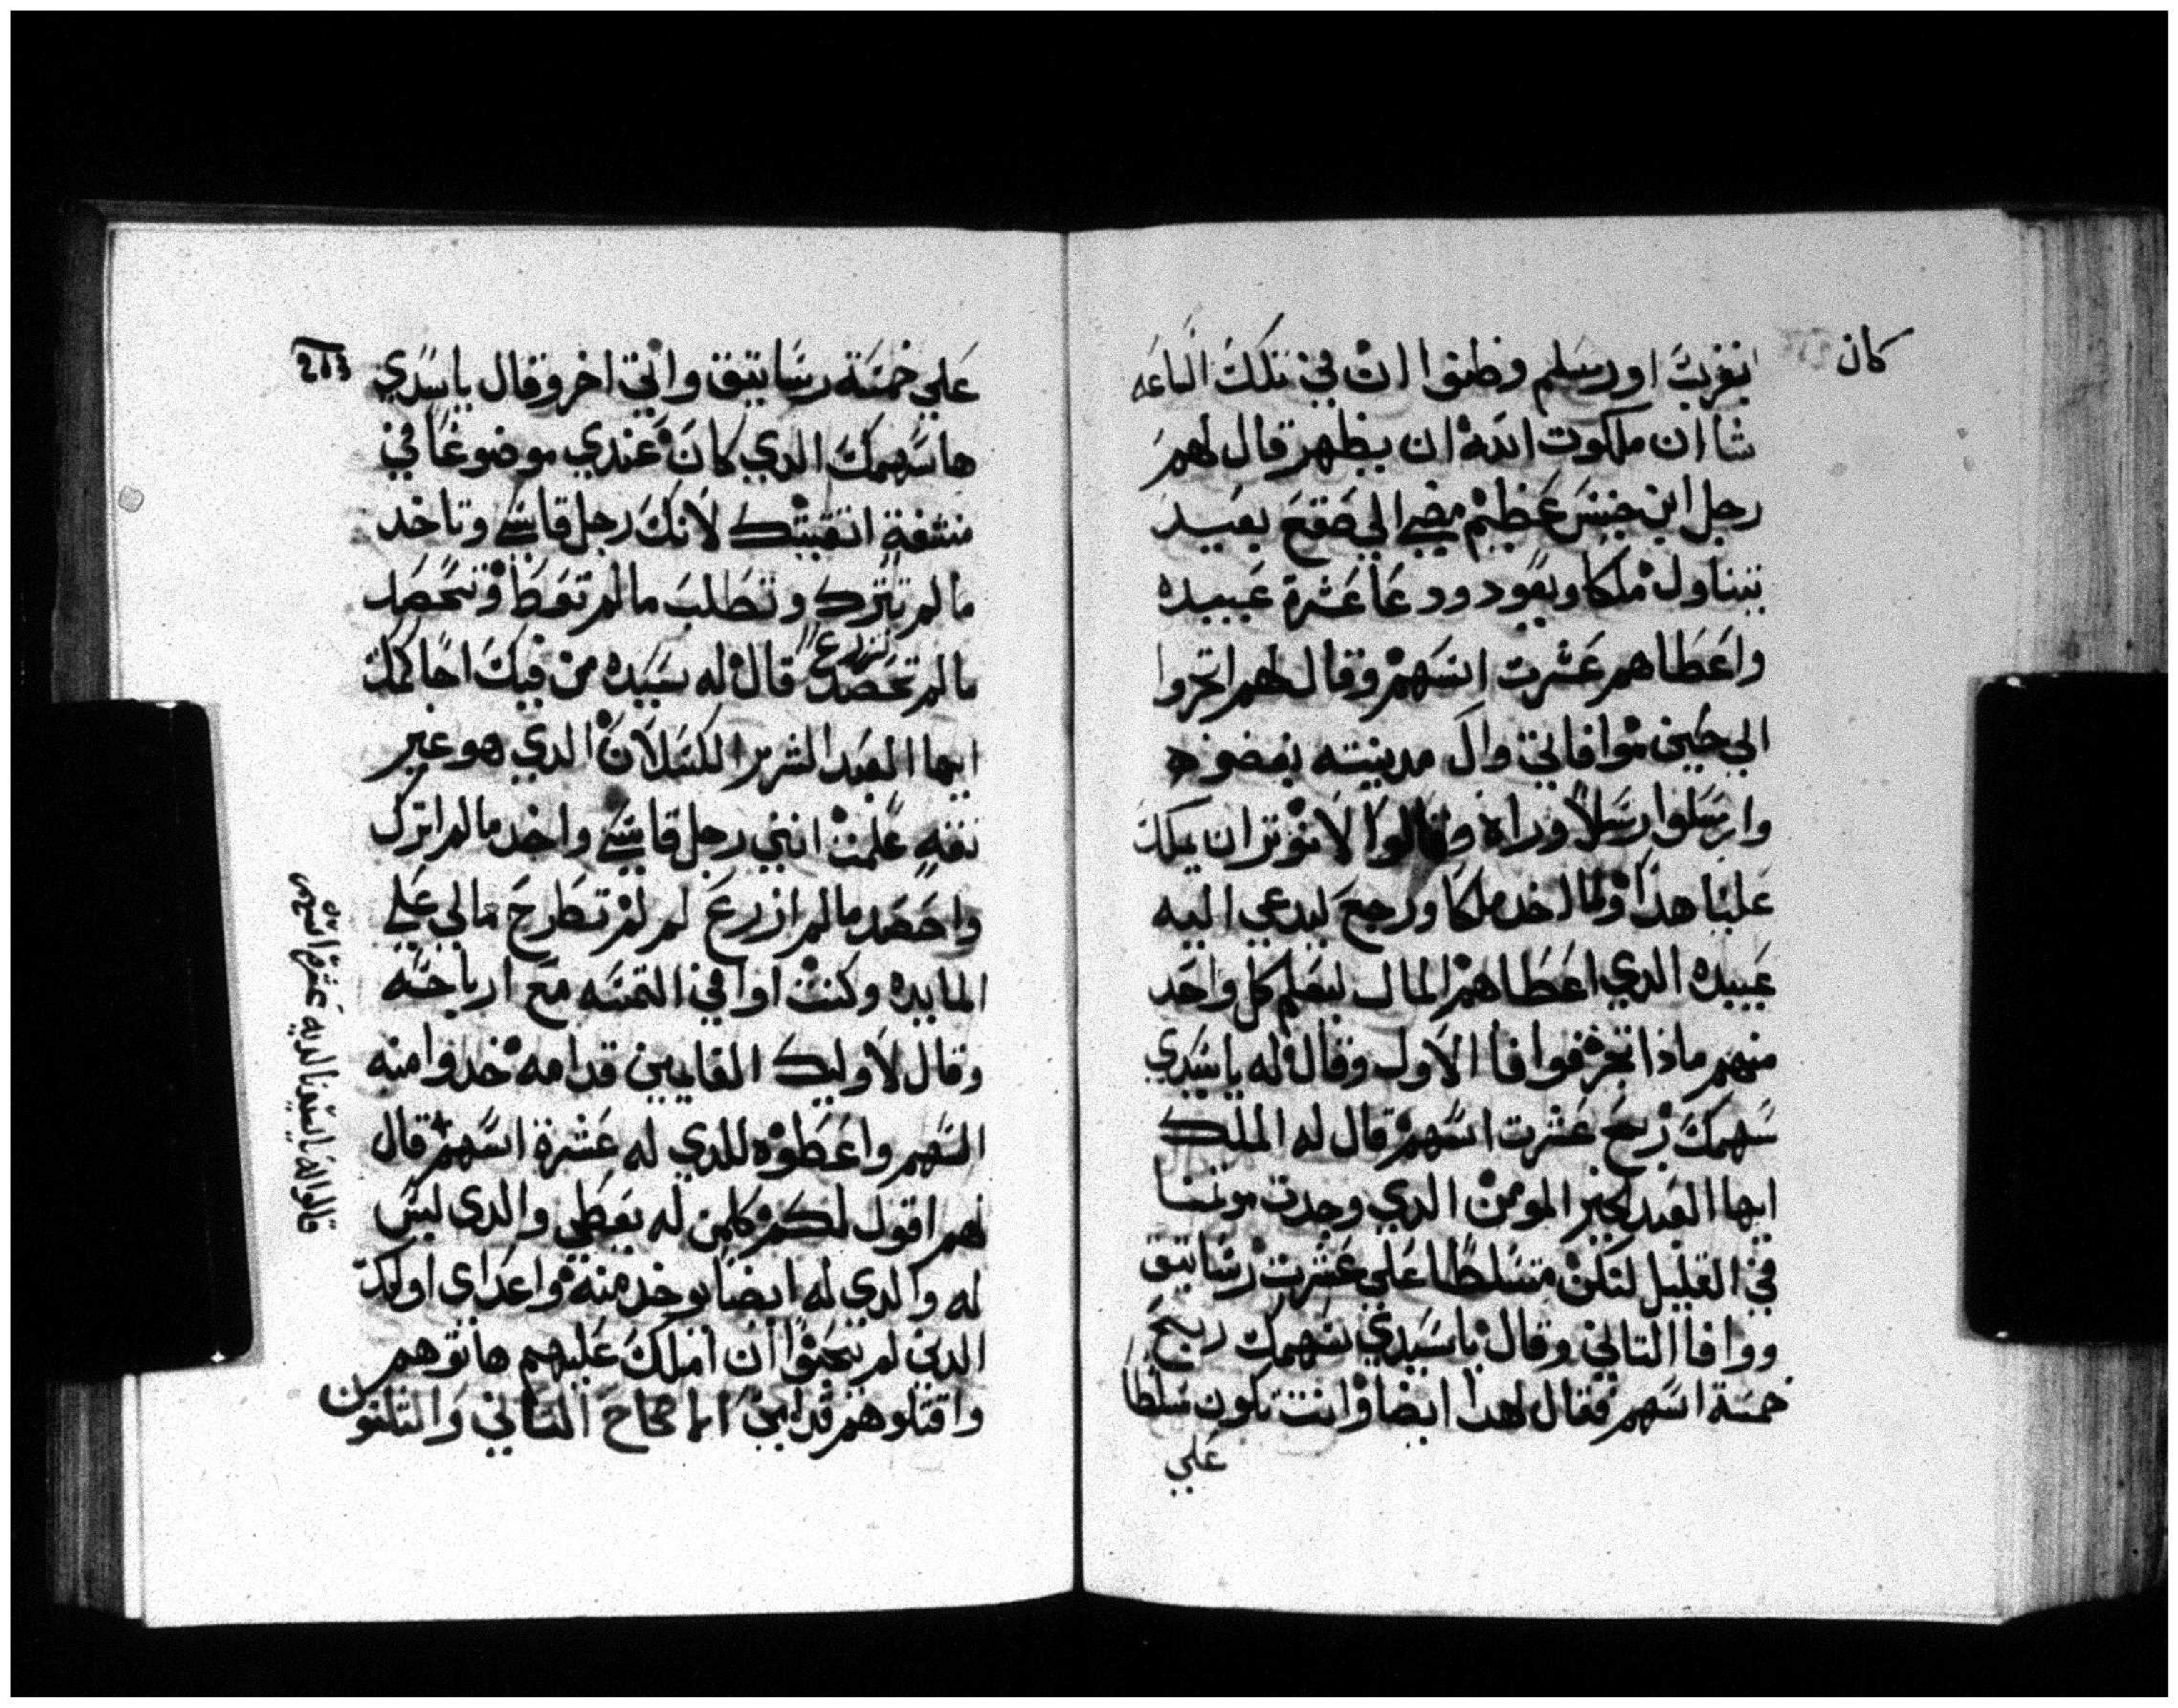 كان
بغرب اورسلم وظنوا ان في تلك الساعه
شا ان ملكوت الله ان يظهر قال لهم
رجل ابن جنس عظيم مضي الي صقع بعيد
يتناول ملكا ويعود ودعا عشرة عبيده
واعطاهم عشرت اسهم وقال لهم اتجروا
الي حين موافاتي وال مدينته يبغضوه
وارسلوا رسلا وراه وقالوا لا نوتر ان يملك
علينا هدا ولما اخد ملكا ورجع ليدعي اليه
عبيده الدي اعطاهم المال ليعلم كل واحد
منهم ماذا تجرفوا فا الاول وقال له ياسيدي
سهمك ربح عشرت اسهم قال له الملك
ايها العبد الخير المومن الدي وجدت مومنا
في القليل لتكن متسلطا علي عشرت رساتيق
ووافا التاني وقال ياسيدي سهمك ربح
خمسة اسهم فقال لهدا ايضا وانت تكون مسلطا
علي
263
علي خمسة رساتيق واتي اخر وقال ياسيدي
ها سهمك الدي كان عندي موضوعا في
منشفة اتقيتك لانك رجل قاسي وتاخد
ما لم تترك وتطلب ما لم تعط وتحصد
تزرع
ما لم تحصد قال له سيده من فيك احاكمك
ايها العبد الشرير الكسلان الدي هو غير
تقه علمت انني رجل قاسي واخد ما لم اترك
واحصد ما لم ازرع لم لم تطرح مالي علي
المايده وكنت اوافي التمسه مع ارباحه
وقال لاوليك القايمين قدامه خدوا منه
السهم واعطوه للدي له عشرة اسهم قال
لهم اقول لكم كلمن له يعطي والدي ليس
له والدي له ايضا يوخد منه واعداي اوليك
الدين لم يحبوا ان املك عليهم هاتوهم
واقتلوهم قدامي الاصحاح التاني والتلتون
قالوا له ياسيدنا لديه عشرة اسهم